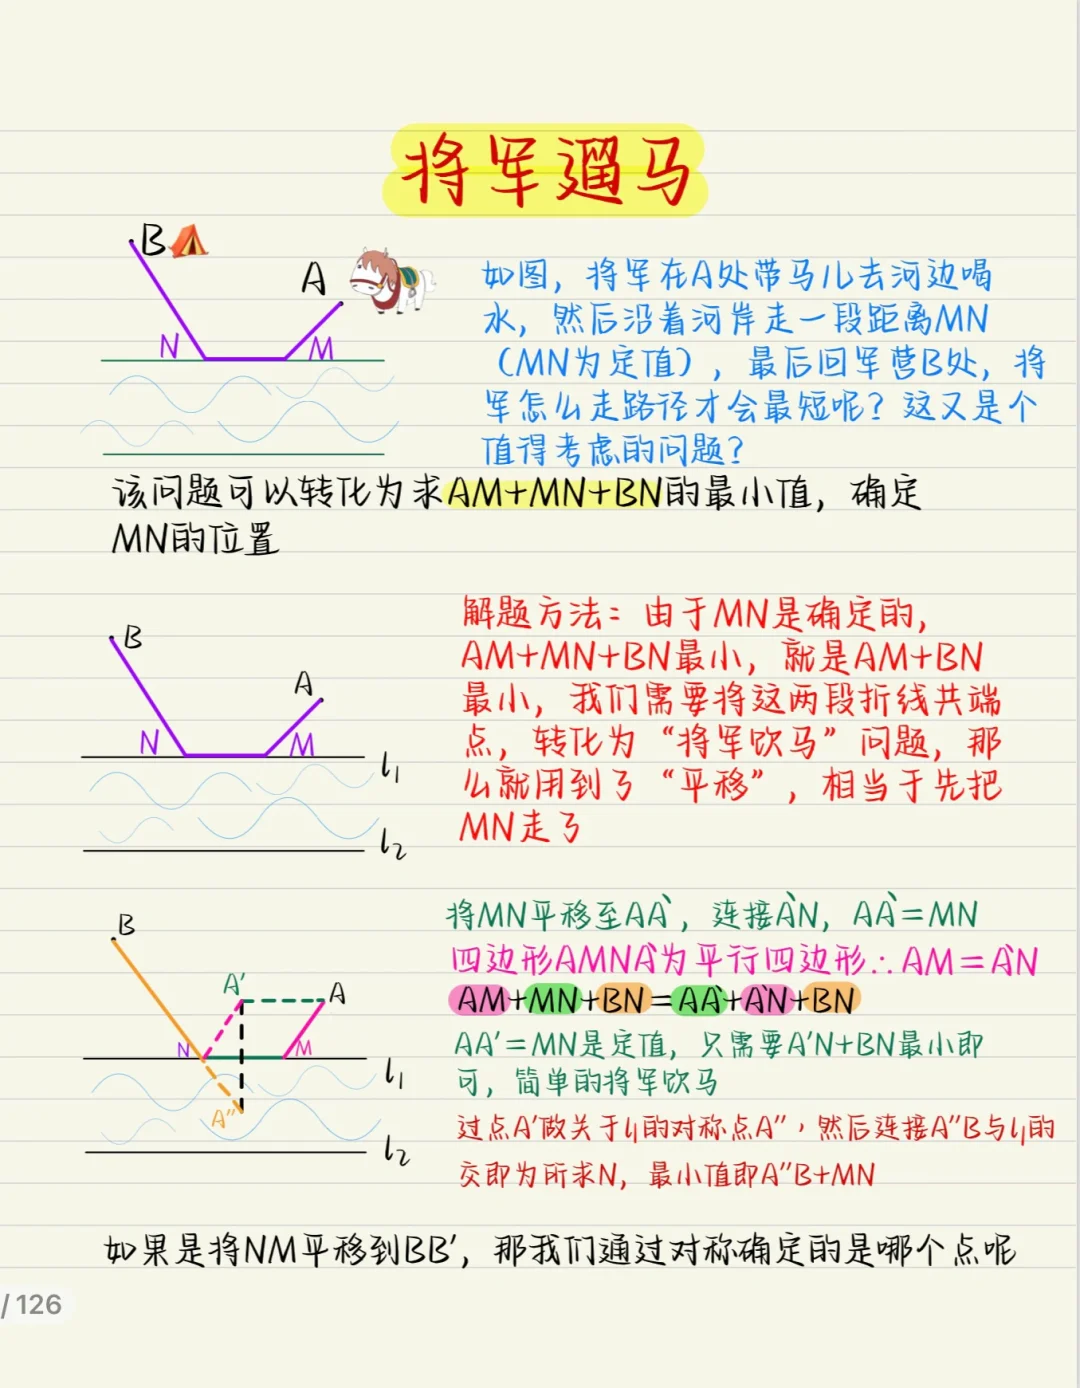 将军遛马
B
A
N
M
如图，将军在A处带马儿去河边喝
水，然后沿着河岸走一段距离MN
（MN为定值），最后回军营B处，将
军怎么走路径才会最短呢？这又是个
值得考虑的问题？
该问题可以转化为求AM+MN+BN的最小值，确定
MN的位置
B
A
N
M
l₁
l₂
解题方法：由于MN是确定的，
AM+MN+BN最小，就是AM+BN
最小，我们需要将这两段折线共端
点，转化为“将军饮马”问题，那
么就用到了“平移”，相当于先把
MN走了
B
A'
A
N
M
l₁
A''
l₂
将MN平移至AA`，连接A`N，AA`=MN
四边形AMNA`为平行四边形∴AM=A`N
AM+MN+BN=AA`+A`N+BN
AA'=MN是定值，只需要A'N+BN最小即
可，简单的将军饮马
过点A'做关于l₁的对称点A''，然后连接A''B与l₁的
交即为所求N，最小值即A''B+MN
如果是将NM平移到BB'，那我们通过对称确定的是哪个点呢
/ 126